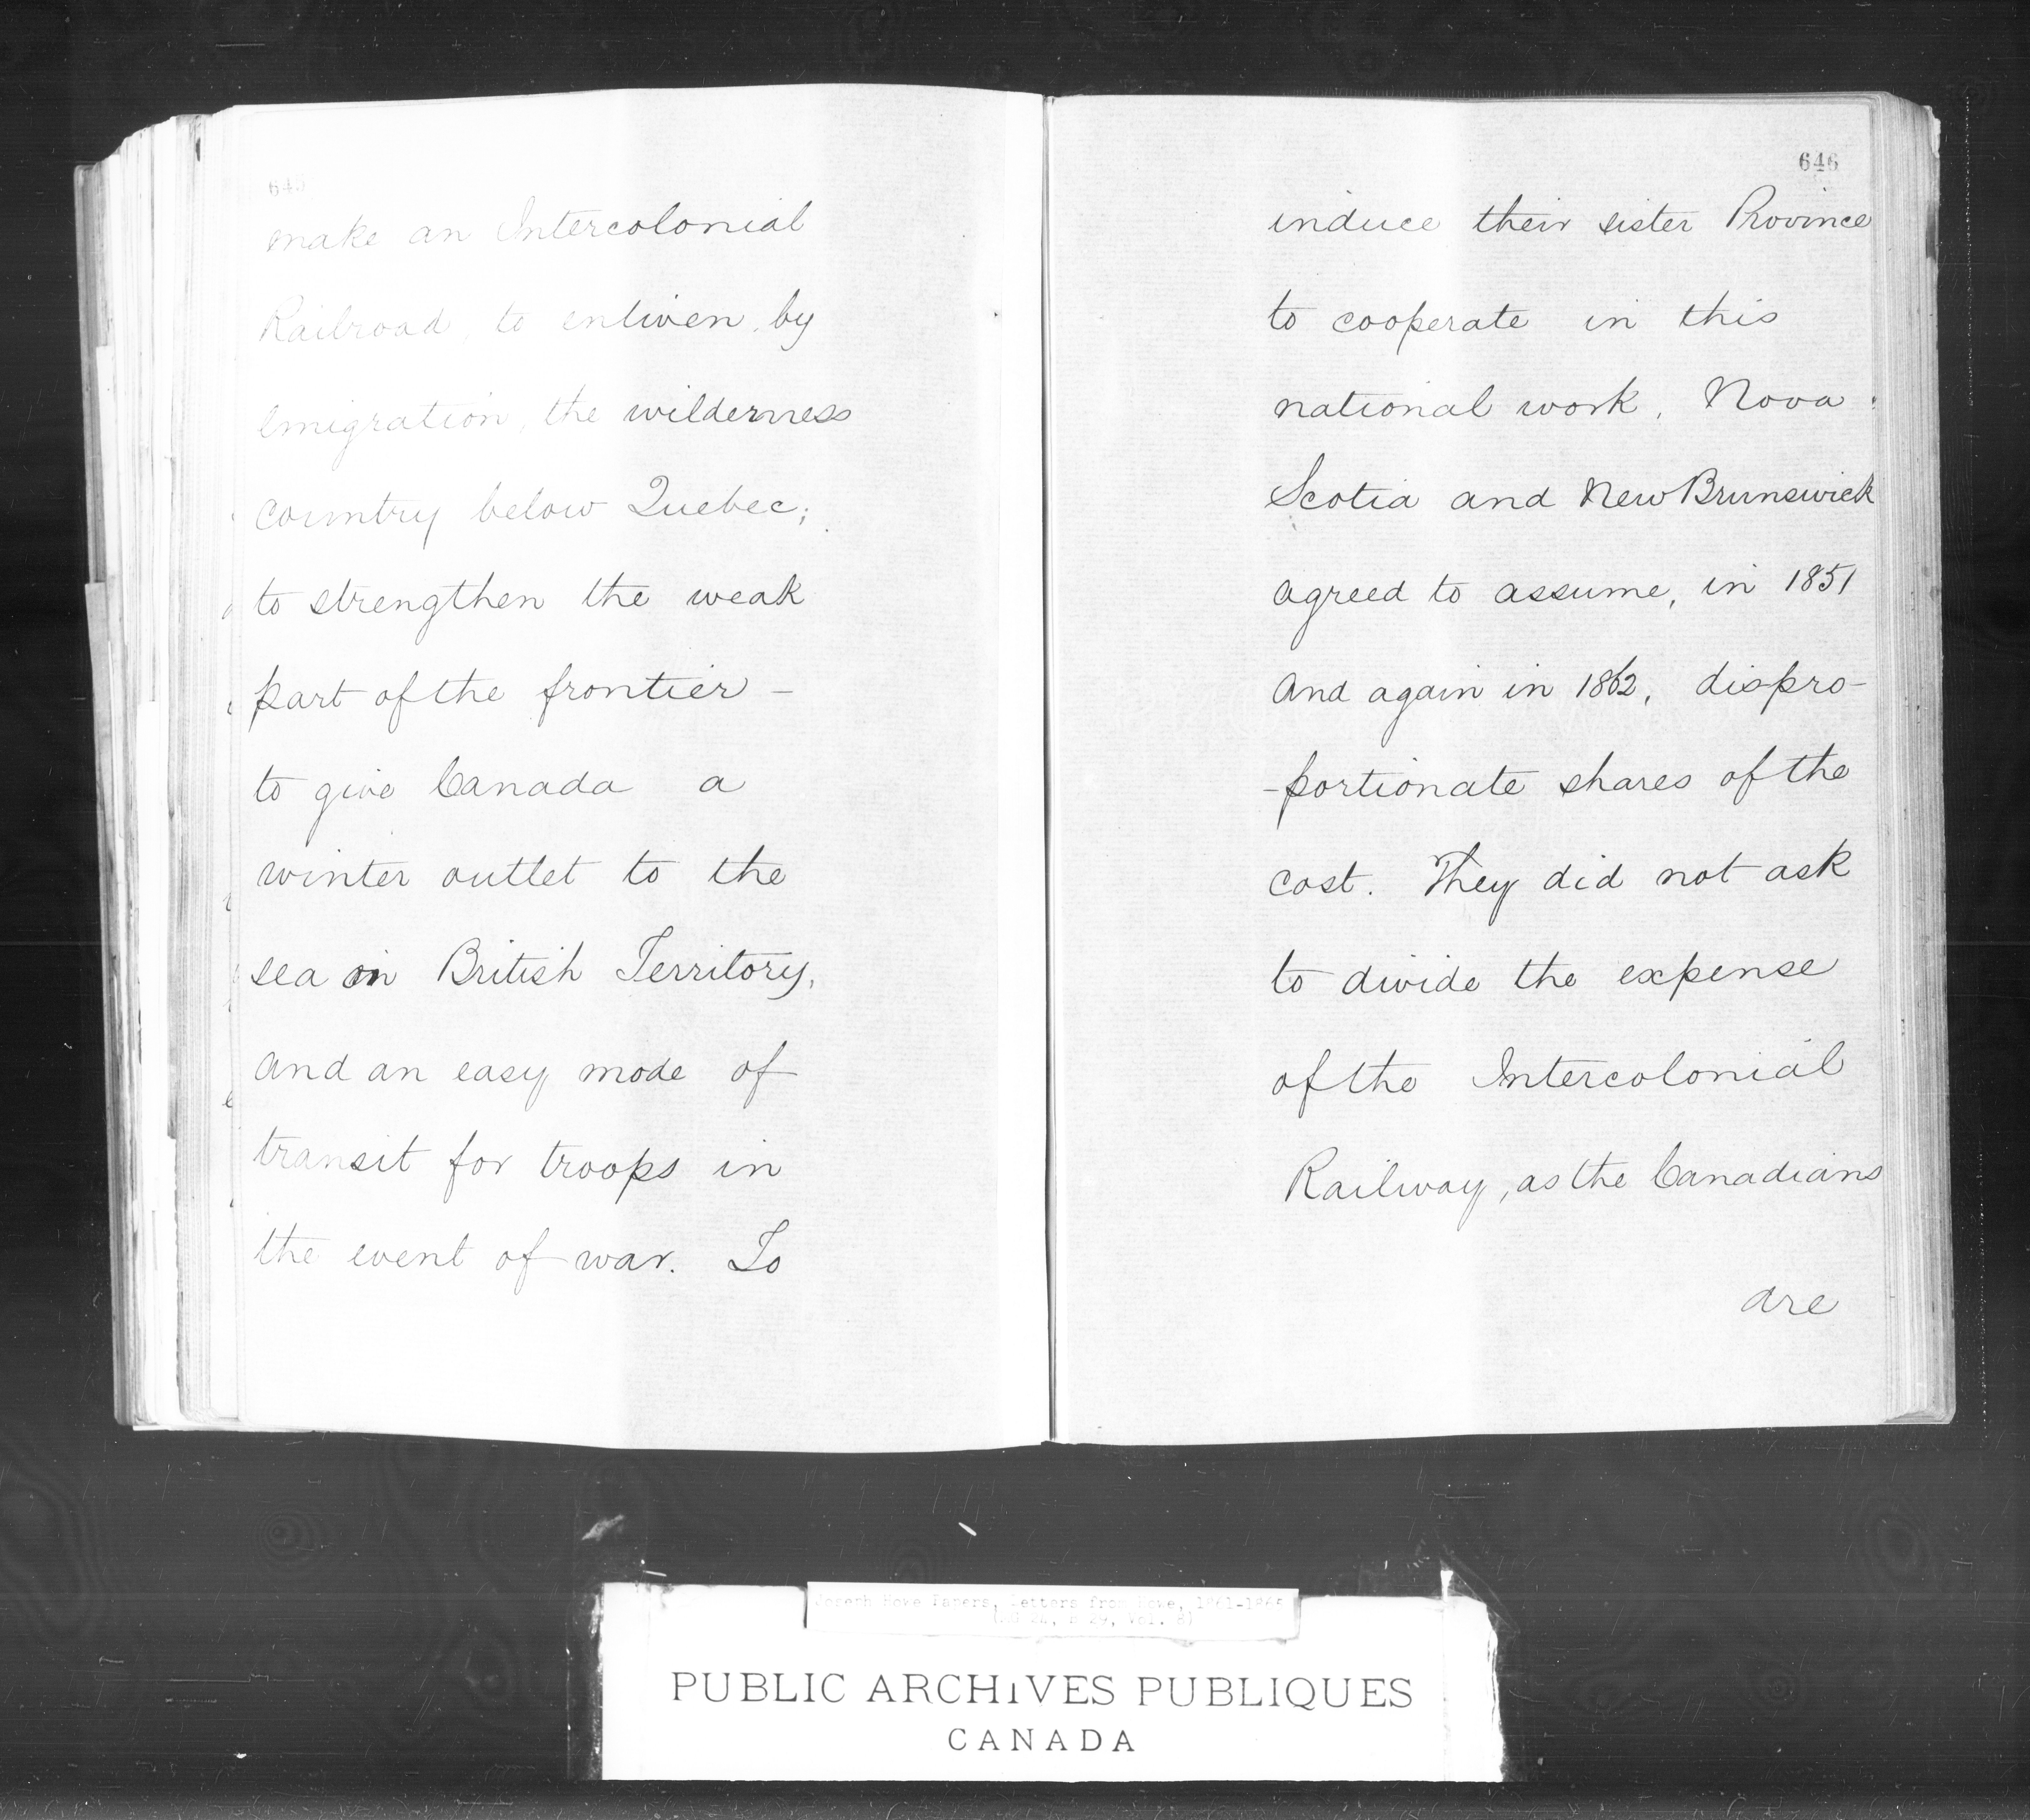 645
make an Intercolonial
Railroad, to enliven, by
emigration, the wilderness
country below Quebec;
to strengthen the weak
part of the frontier –
to give Canada a
winter outlet to the
sea in British Territory,
and an easy mode of
transit for troops in
the event of war. To
646
induce their sister Province
to cooperate in this
national work, Nova
Scotia and New Brunswick
agreed to assume, in 1851
and again in 1862, dispro-
-portionate shares of the
cost. They did not ask
to divide the expense
of the Intercolonial
Railway, as the Canadians
are
Joseph Howe Papers, Letters from Howe, 1861-1868
(MG 24, B 29, Vol. 8)
PUBLIC ARCHIVES PUBLIQUES
CANADA